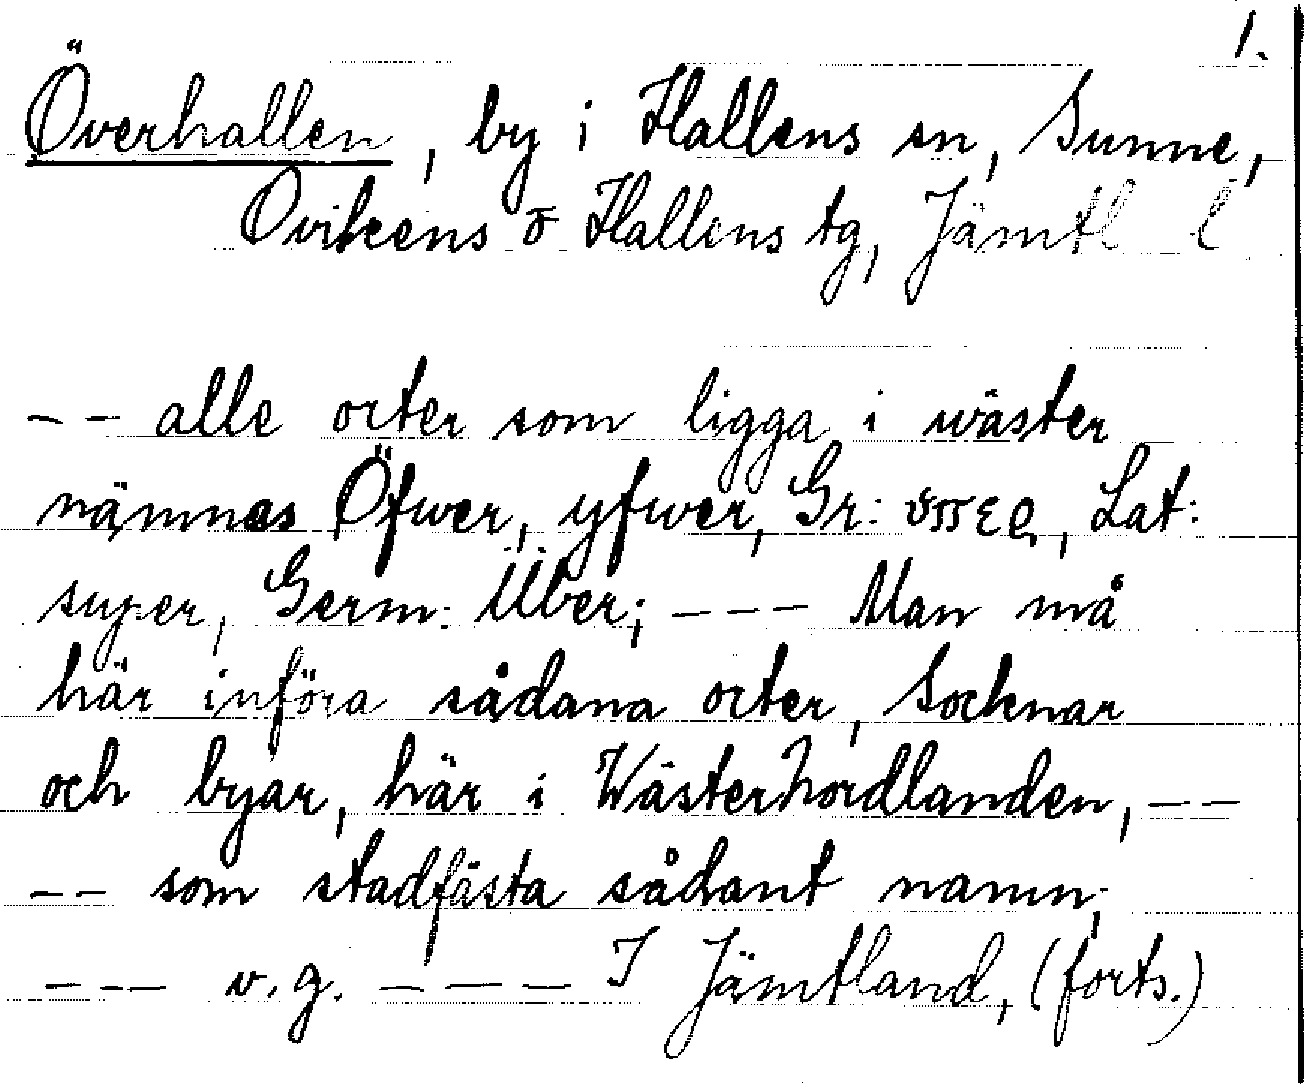 1.
Överhallen, by i Hallens sn, Sunne,
Ovikens o Hallens tg, Jämtl l
-- alle orter som ligga i wäster
nämnas Öfwer, yfwer, Gr: ὑπερ, Lat:
super, Germ: Über; --- Man må
här införa sådana orter, Socknar
och byar, här i Wästerhordlanden, --
-- som stadfästa sådant namn;
--- v.g. --- I Jämtland, (forts.)